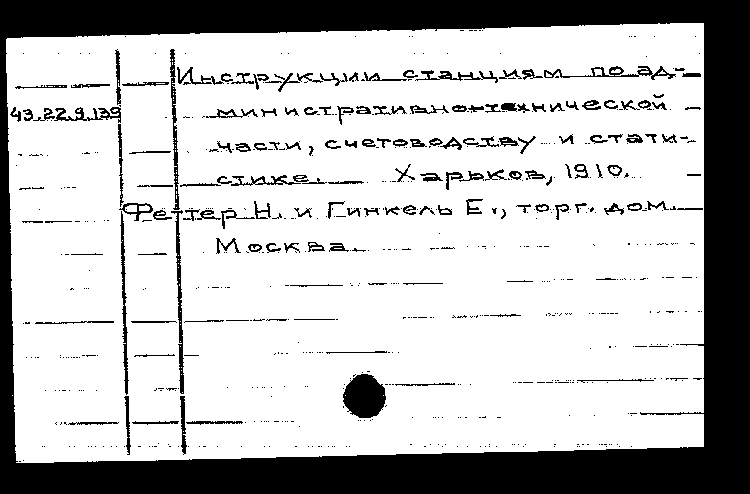 Инструкции станциям по ад-
43.22.9.139
министративно-технической
части, счетоводству и стати-
стике. Харьков, 1910.
Феттер Н. и Гинкель Е., торг. дом.
Москва.